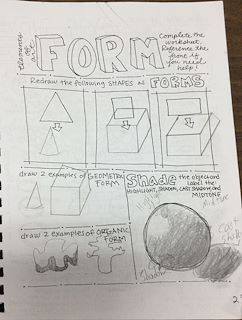 elements of art
FORM
Complete the
worksheet.
Reference the
front if
you need
help!
Redraw the following SHAPES as FORMS
draw 2 examples of GEOMETRIC
FORM
Shade the object and
label the:
HIGHLIGHT, SHADOW, CAST SHADOW and
MIDTONE
Midtone
draw 2 examples of ORGANIC
FORM
Cast
Shadow
Shadow